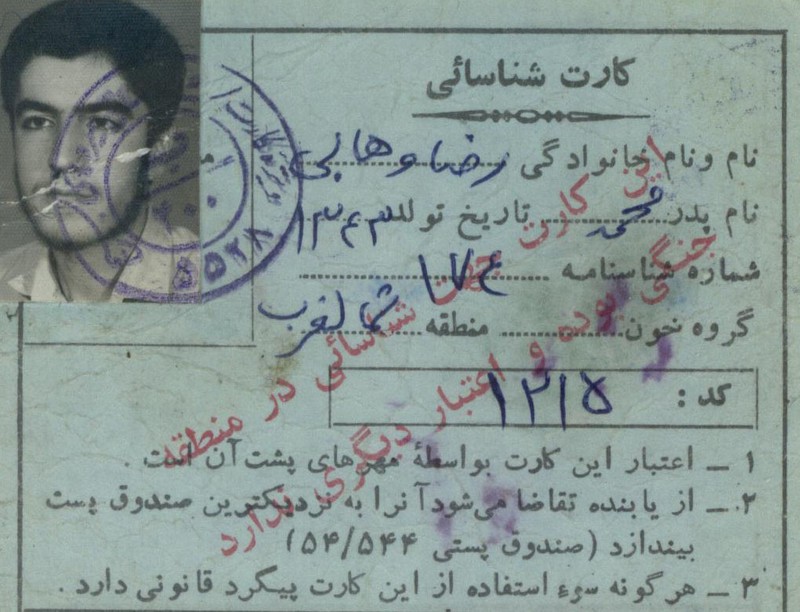 کارت شناسائی
نام ونام خانوادگی رضا وهابی
نام پدر محمد تاریخ تولد ۱۳۴۳
شماره شناسنامه ۱۷۴
گروه خون منطقه شمالغرب
کد: ۱۲۱۵
۱ ـ اعتبار این کارت بواسطهٔ مهرهای پشت آن است .
۲ ـ از یابنده تقاضا می‌شود آنرا به نزدیکترین صندوق پست
بیندازد (صندوق پستی ۵۴/۵۴۴)
۳ ـ هرگونه سوء استفاده از این کارت پیگرد قانونی دارد .
این کارت جهت شناسائی در منطقه
جنگی بوده و اعتبار دیگری ندارد